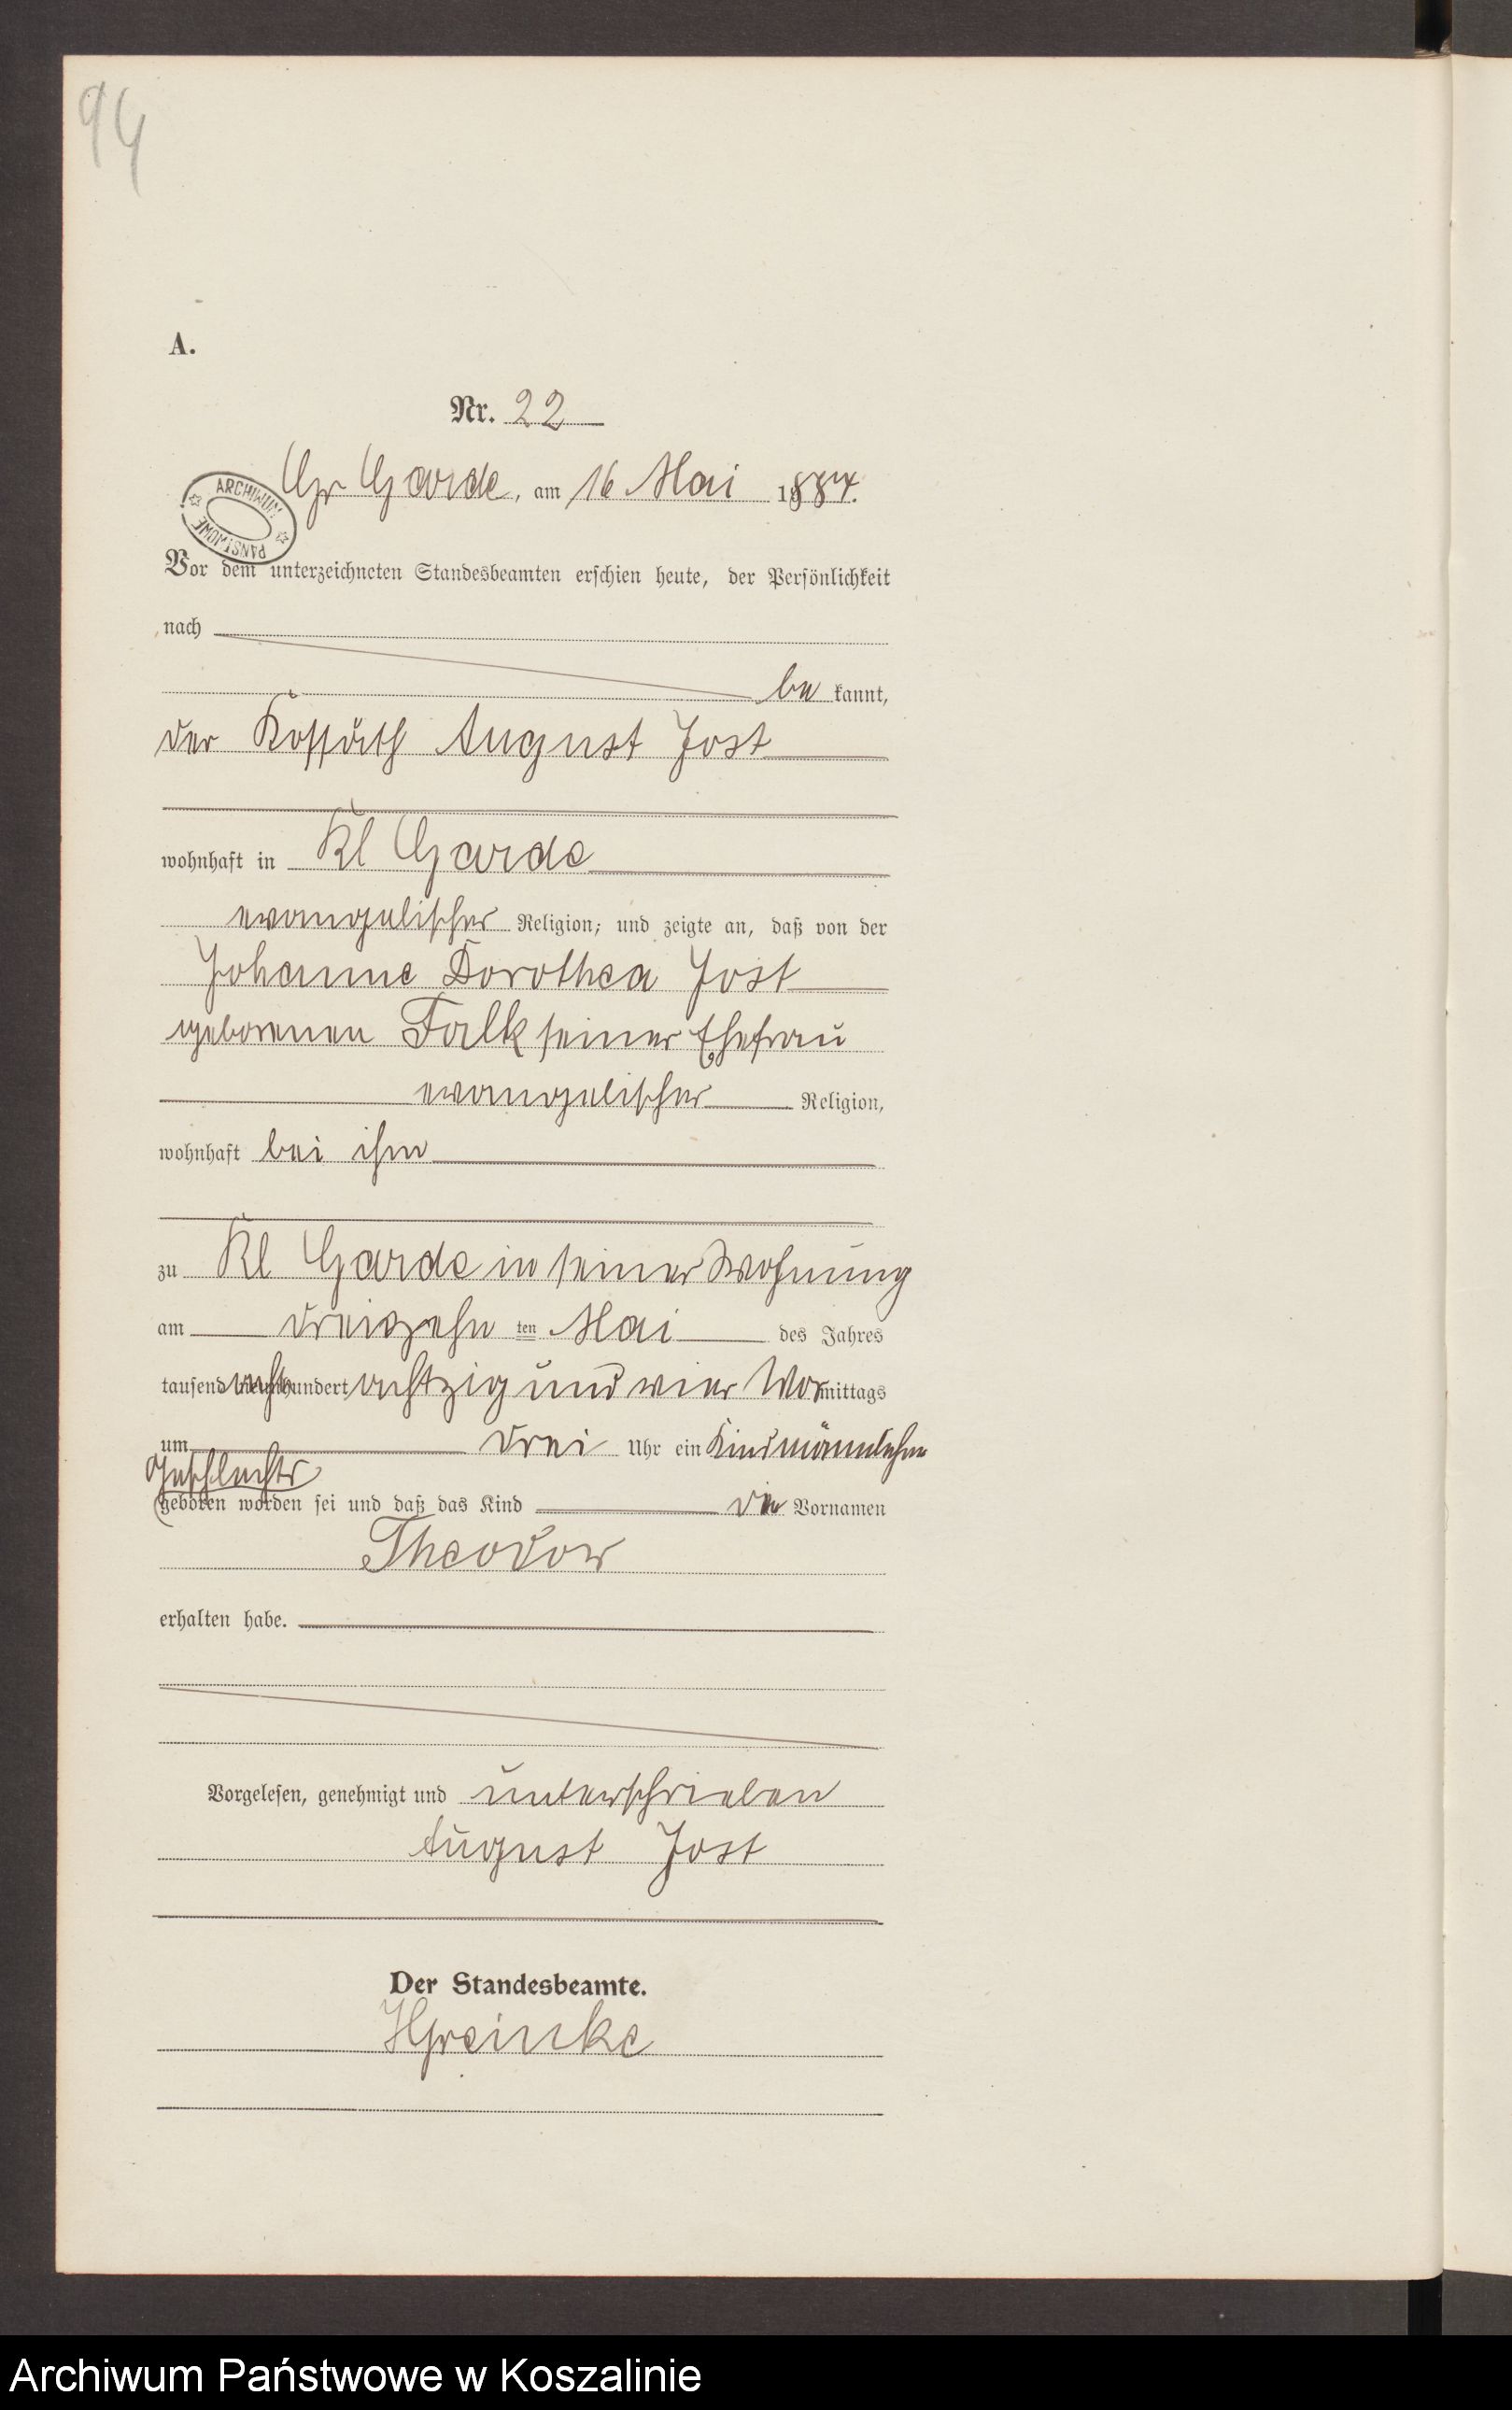 94
A.
Nr. 22
Gr Garde, am 16 Mai 1884.
ARCHIWUM PAŃSTWOWE
Vor dem unterzeichneten Standesbeamten erschien heute, der Persönlichkeit
nach
be kannt,
der Kossäth August Jost
wohnhaft in Kl Garde
evangelischer Religion; und zeigte an, daß von der
Johanne Dorothea Jost
geborenen Falk seiner Ehefrau
evangelischer Religion,
wohnhaft bei ihm
zu Kl Garde in seiner Wohnung
am dreizehn ten Mai des Jahres
tausend achthundert achtzig und vier Vormittags
um drei Uhr ein Kind männlichen
Geschlechts
geboren worden sei und daß das Kind die Vornamen
Theodor
erhalten habe.
Vorgelesen, genehmigt und unterschrieben
August Jost
Der Standesbeamte.
HGreinke
Archiwum Państwowe w Koszalinie